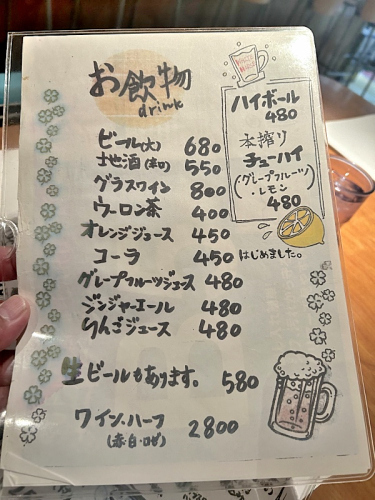 お飲物
drink
ビール(大) 680
地酒(本口) 550
グラスワイン 800
ウーロン茶 400
オレンジジュース 450
コーラ 450
グレープフルーツジュース 480
ジンジャーエール 480
りんごジュース 480
生ビールもあります。 580
ワイン・ハーフ 2800
(赤・白・ロゼ)
ハイボール
480
本搾り
チューハイ
(グレープフルーツ)
・レモン
480
はじめました。